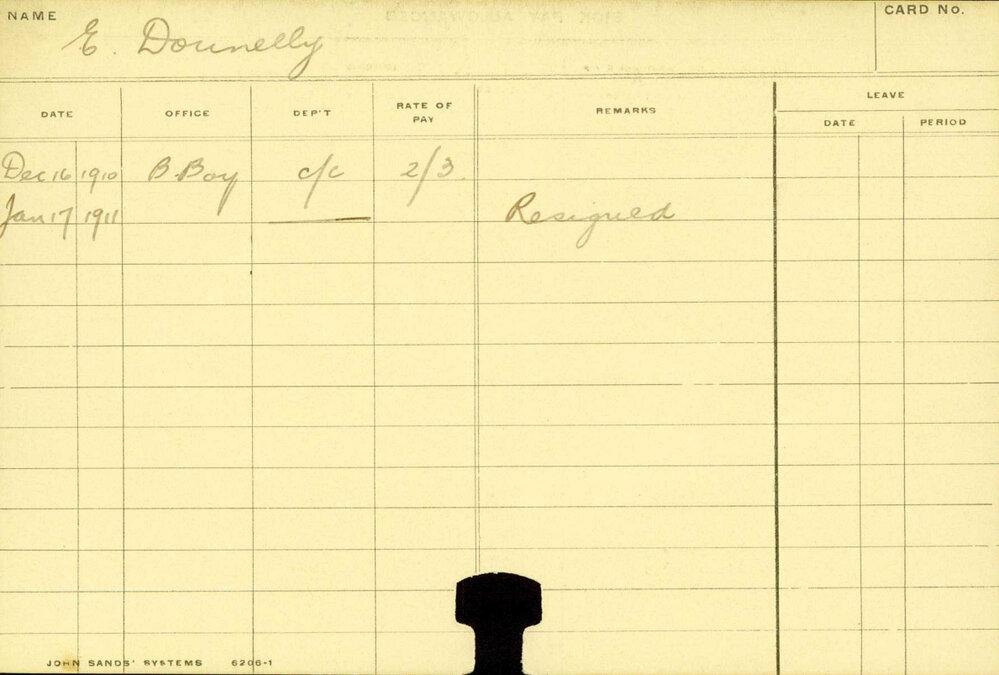 NAME E. Donnelly CARD No.
DATE OFFICE DEP'T RATE OF PAY REMARKS LEAVE
DATE PERIOD
Dec 16 1910 B. Boy c/c 2/3.
Jan 17 1911 Resigned
JOHN SANDS' SYSTEMS 6206-1